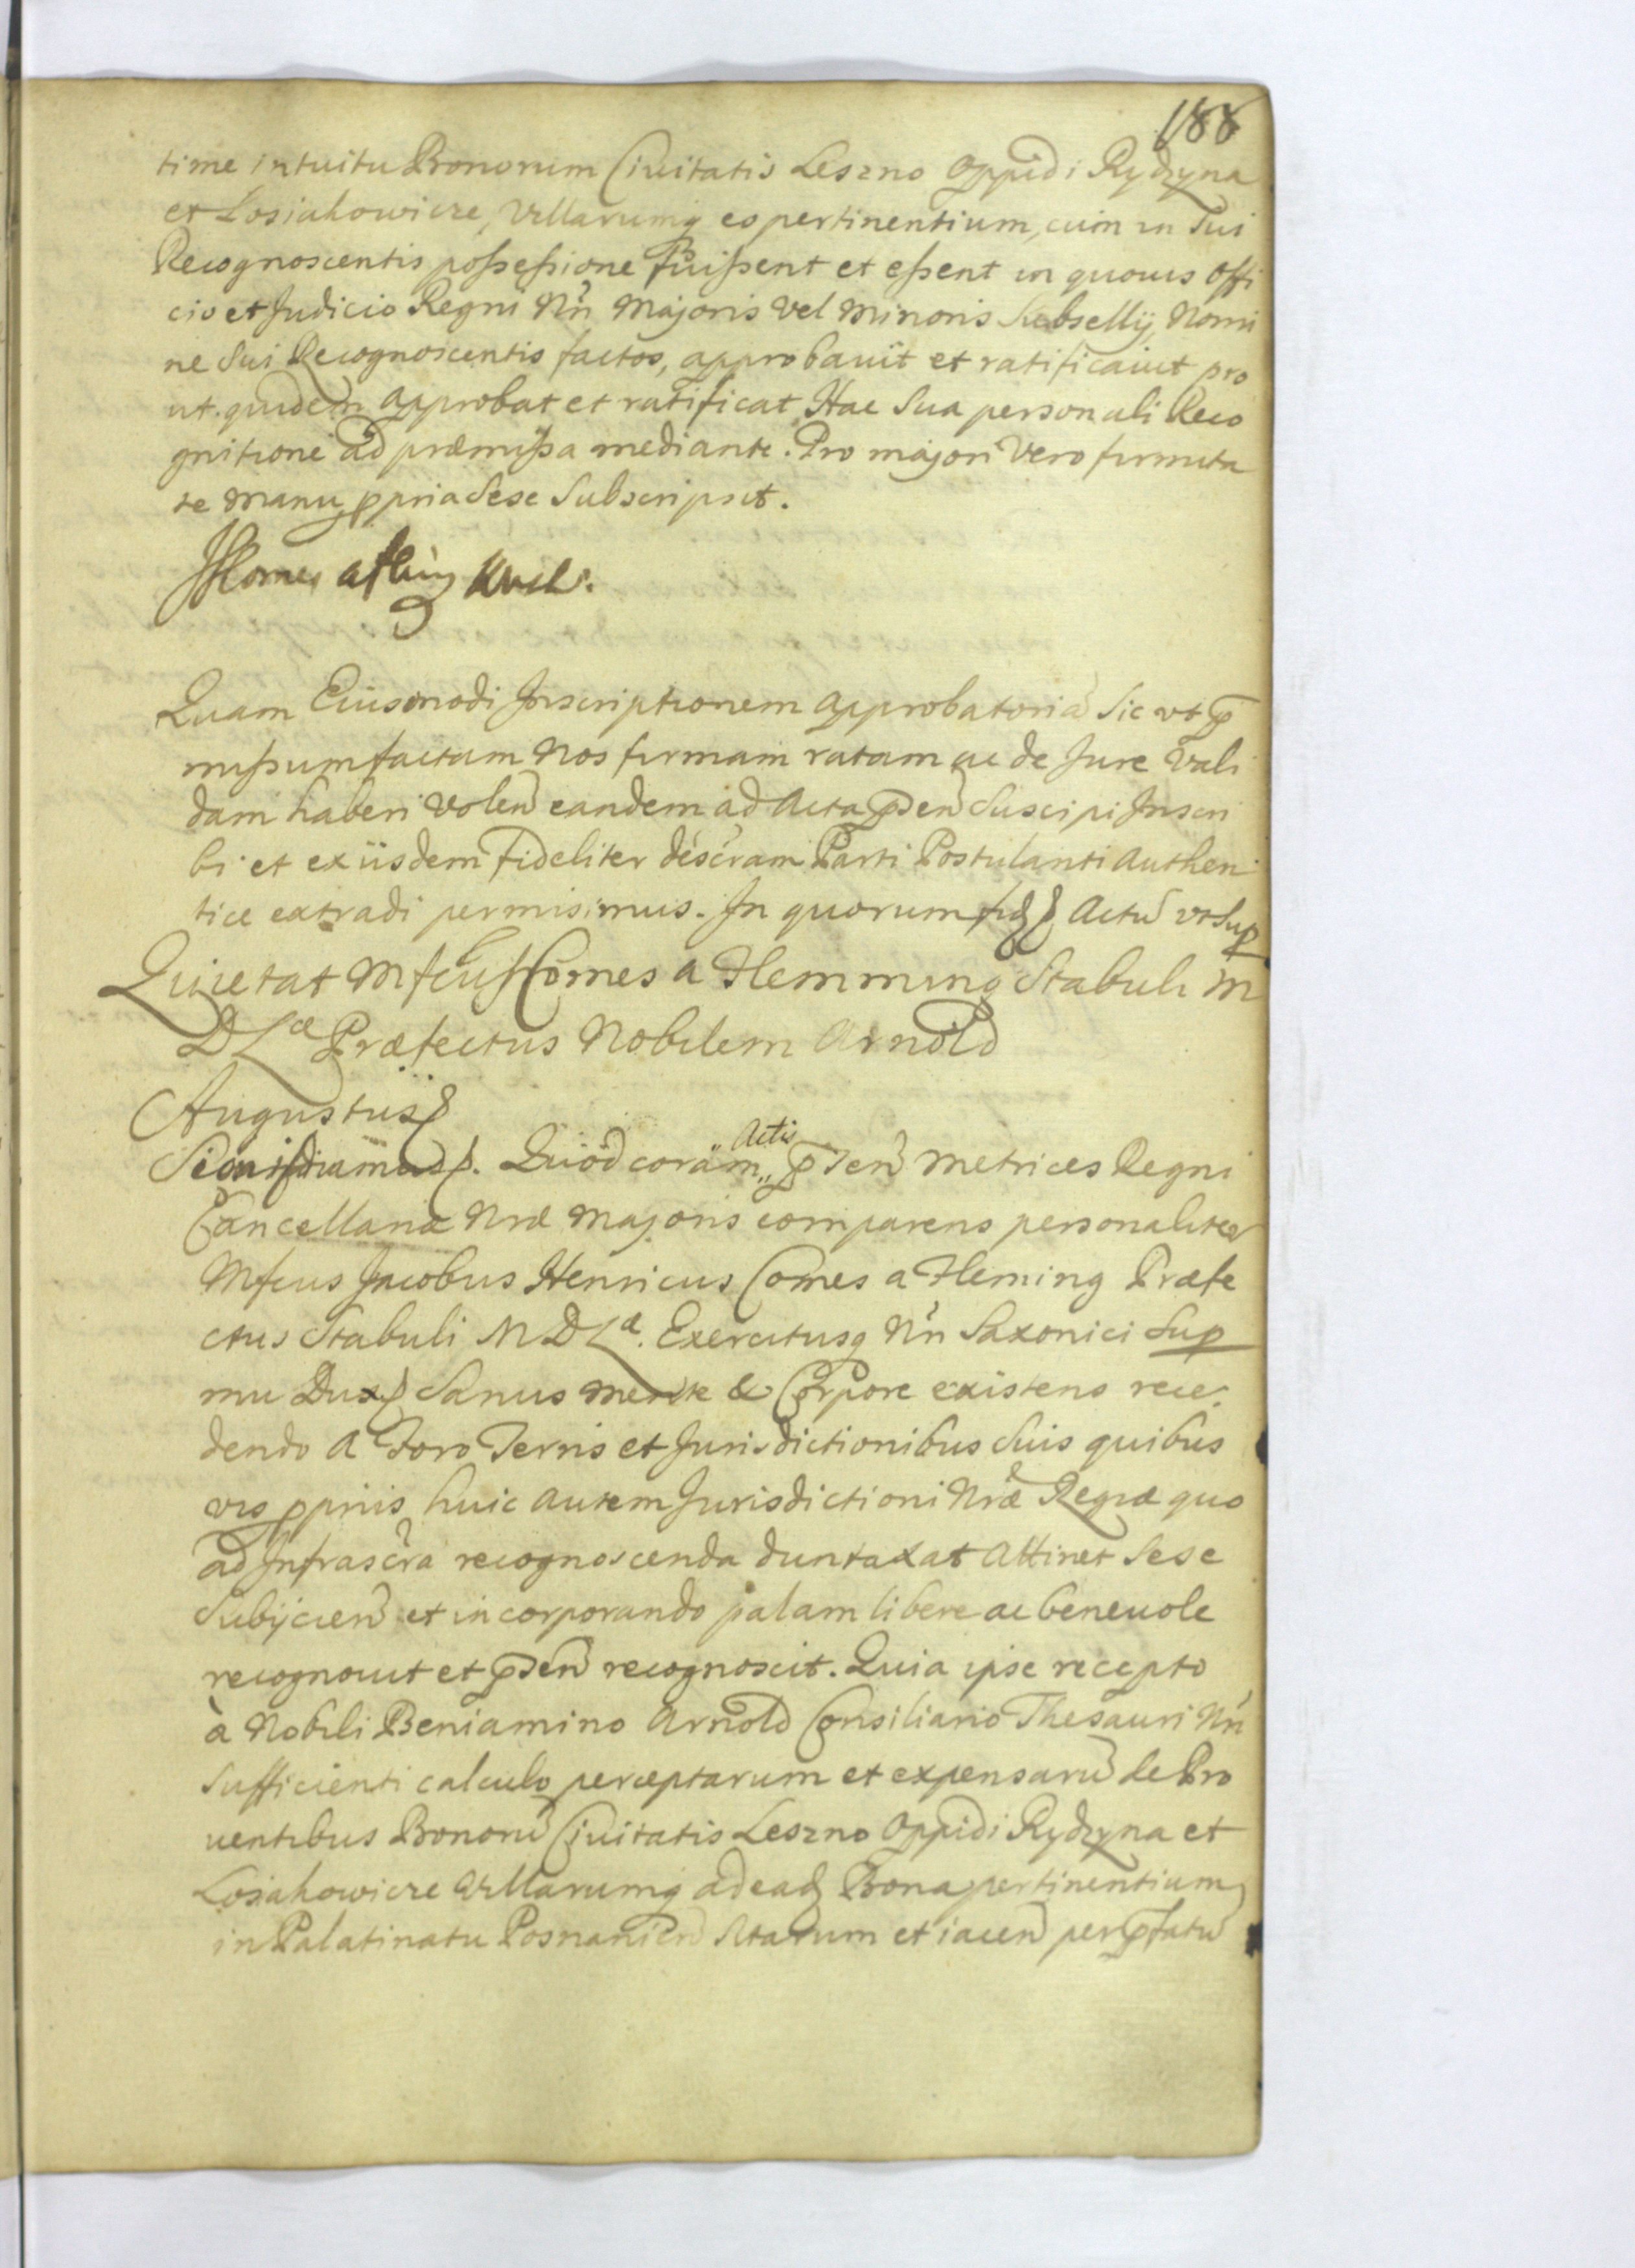 188
time intuitu Bonorum Civitatis Leszno Oppidi Rydzyna
et Losiakowicze, Villarumq eo pertinentium, cum in Sui
Recognoscentis possessione fuissent et essent in quovis Offi
cio et Judicio Regni Nri Majoris vel Minoris Subsellij, Nomi
ne Sui Recognoscentis factos, approbavit et ratificavit pro
ut quidem approbat et ratificat Hac Sua personali Reco
gnitione ad præmissa mediante. Pro majori Vero firmita
te Manu ppria Sese Subscripsit.
Quam Eiusmodi Inscriptionem Approbatoriã Sic vt p
missum factam Nos firmam ratam ac de Jure Vali
dam haberi Volen̄ eandem ad Acta p̄sen̄ Suscipi Inscri
bi et ex iisdem fideliter descram Parti Postulanti Authen
tice extradi permisimus. In quorum fid Actū vt Sup
Quietat Mfcus Comes a Flemming Stabuli M
D Læ Præfectus Nobilem Arnold
Augustus
Significamus. Quod coram Actis p̄sen̄ Metrices Regni
Cancellariæ Nræ Majoris comparens personaliter
Mfcus Jacobus Henricus Comes a Fleming Præfe
ctus Stabuli M D Læ. Exercitusq Nri Saxonici Sup
mu Dux Sanus Mente & Corpore existens rece
dendo a Foro Terris et Jurisdictionibus Suis quibus
vis ppriis huic autem Jurisdictioni Nræ Regiæ quo
ad Infrascra recognoscenda duntaxat Attinet Sese
Subijcien̄ et incorporando palam libere ac benevole
recognovit et p̄sen̄ recognoscit. Quia ipse recepto
à Nobili Beniamino Arnold Consiliario Thesauri Nri
Sufficienti calculo perceptarum et expensarū de Pro
ventibus Bonorū Civitatis Leszno Oppidi Rydzyna et
Losiakowicze Villarumq ad ead Bona pertinentium
in Palatinatu Posnanien̄ Sitarum et iacen̄ per p̄fatū